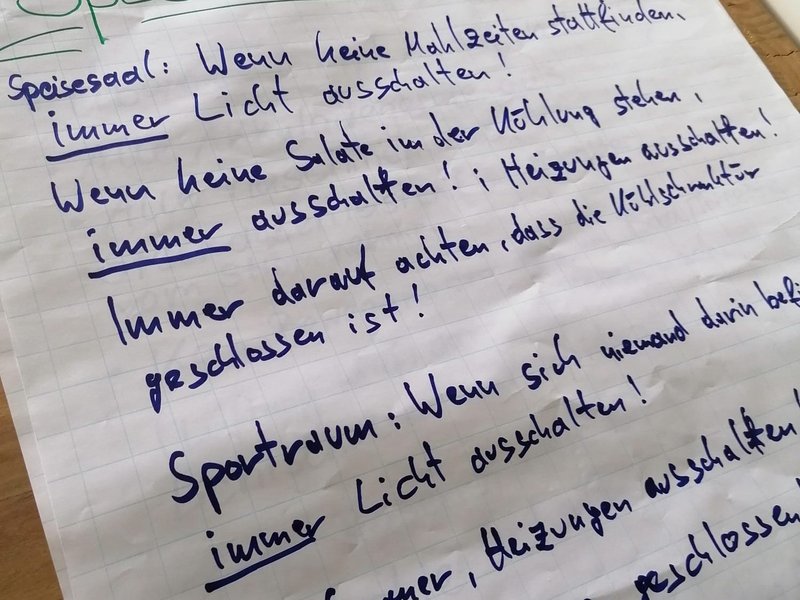 Speisesaal: Wenn keine Mahlzeiten stattfinden,
immer Licht ausschalten!
Wenn keine Salate in der Kühlung stehen,
immer ausschalten! ; Heizungen ausschalten!
Immer darauf achten, dass die Kühlschranktür
geschlossen ist!
Sportraum: Wenn sich niemand darin befi
immer Licht ausschalten!
Heizungen ausschalten!
geschlossen